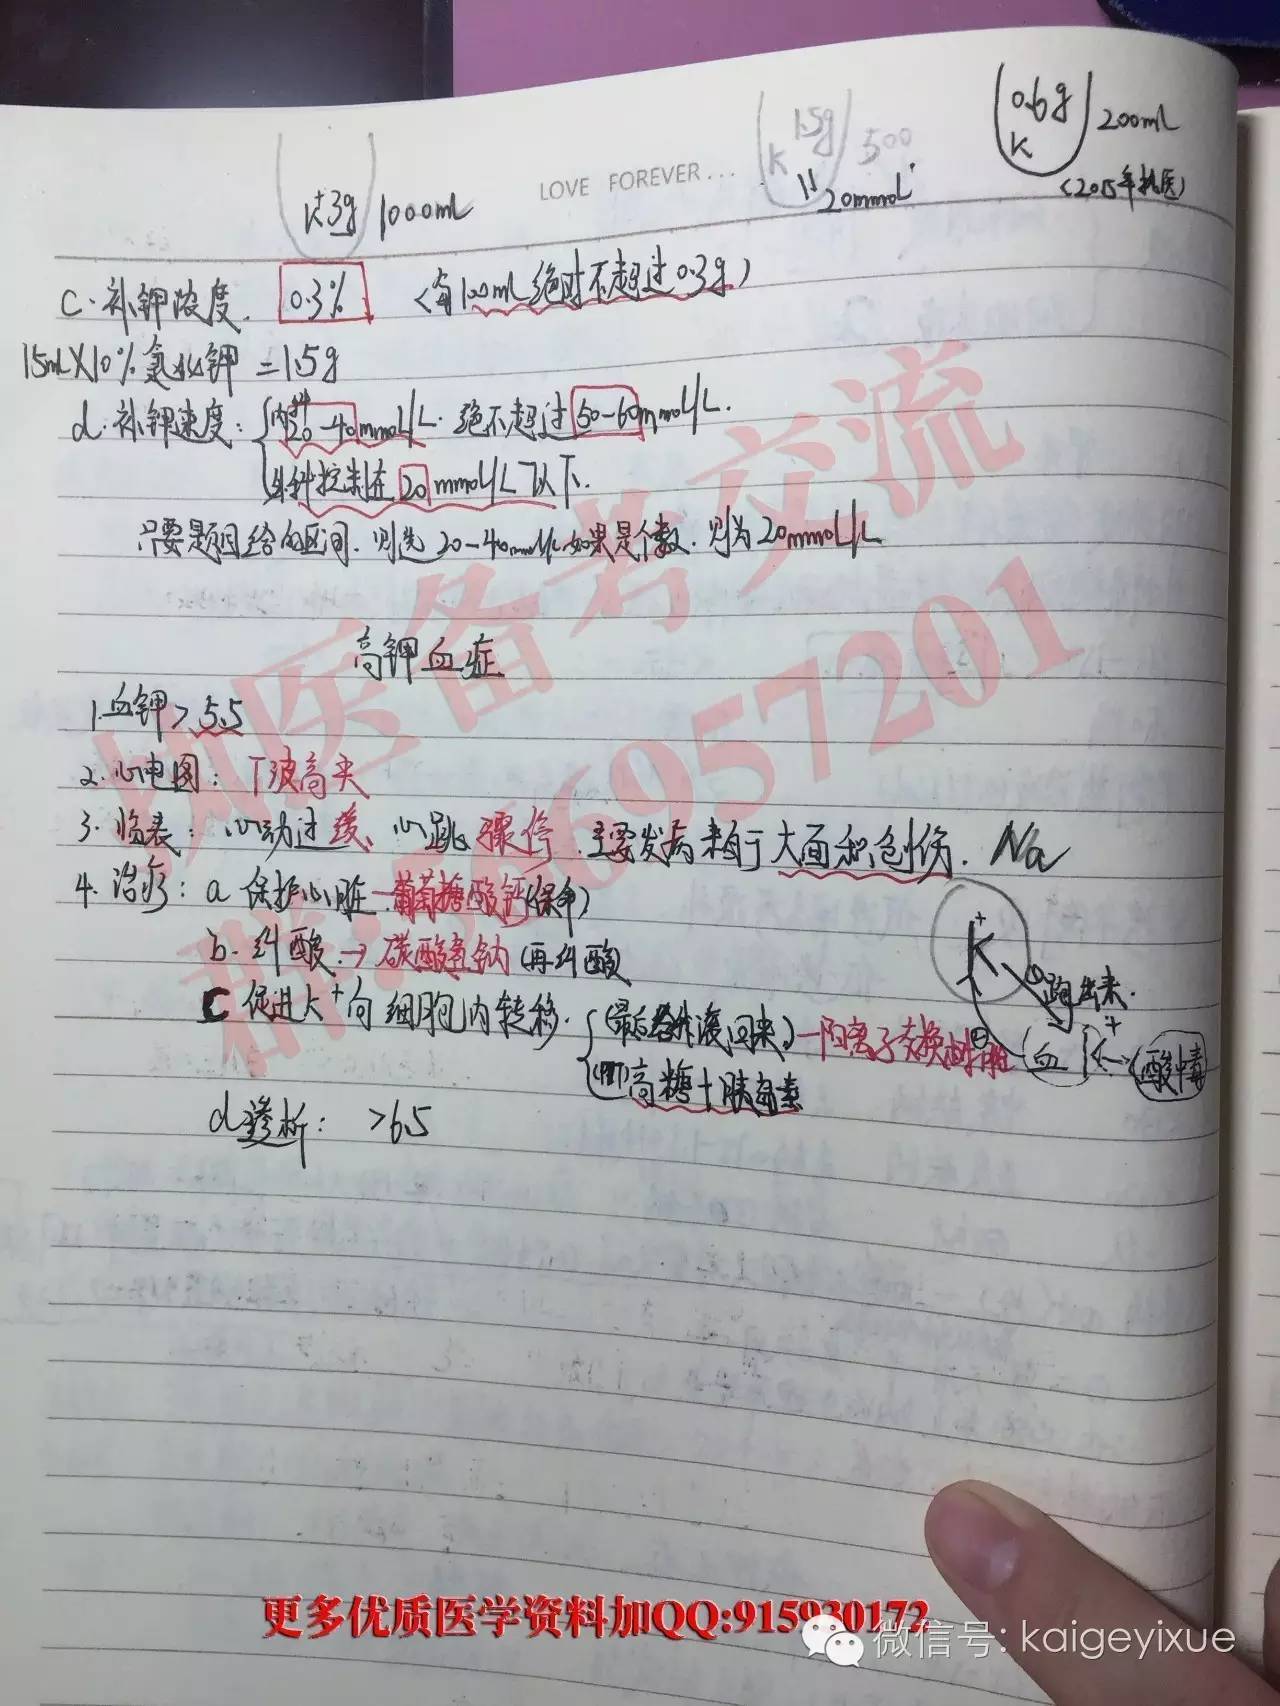 0.6g
K
200ml
1.5g
K
500
20mmol
(2015年执医)
LOVE FOREVER...
K+3g
1000ml
C.补钾浓度. 0.3% (每100ml绝对不超过0.3g)
15ml×10%氯化钾=1.5g
d.补钾速度: 内科20-40mmol/L. 绝不超过50-60mmol/L.
外科控制在20mmol/L以下.
只要题目给的区间.则选20-40mmol/L.如果是个数.则为20mmol/L
高钾血症
1.血钾>5.5
2.心电图:T波高尖
3.临表:心动过缓、心跳骤停.主要发病来自于大面积创伤. Na
4.治疗:a 保护心脏→葡萄糖酸钙(保命)
b.纠酸→碳酸氢钠(再纠酸)
C 促进K+向细胞内转移.
(最后 滚回来)—阳离子交换树脂
高糖+胰岛素
d透析: >6.5
K+
①跑出来.
②
血 K+ ←→ 酸中毒
执医备考交流
群:566957201
更多优质医学资料加QQ:915930172
微信号: kaigeyixue